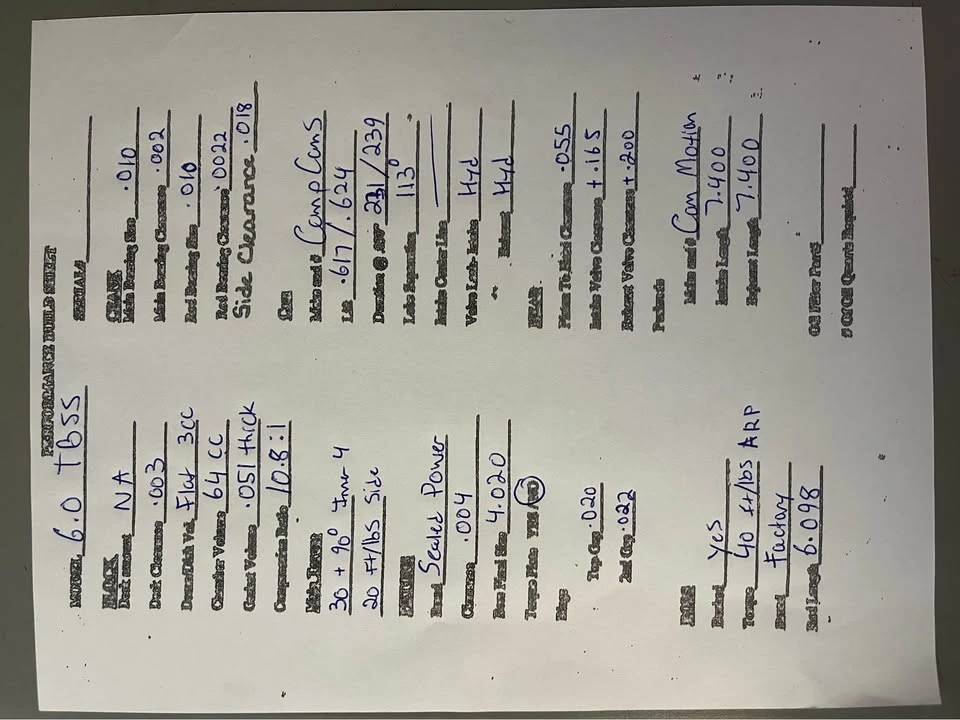 PERFORMANCE BUILD SHEET
MODEL 6.0 TBSS
SERIAL#
BLOCK
Deck amount NA
Deck Clearance .003
Dome/Dish Vol. Flat 3cc
Chamber Volume 64 CC
Gasket Volume .051 thick
Compression Ratio 10.8:1
Main Torque
30 + 90° Inner 4
20 Ft/lbs Side
Brand Sealed Power
Clearance .004
Bore Finish Size 4.020
Torque Plate YES / NO
Rings
Top Gap .020
2nd Gap .022
RODS
Bushed Yes
Torque 40 ft/lbs ARP
Brand Factory
Rod Length 6.098
CRANK
Main Bearing Size .010
Main Bearing Clearance .002
Rod Bearing Size .010
Rod Bearing Clearance .0022
Side Clearance .018
Cam
Make and # Comp Cams
Lift .617/.624
Duration @ .050" 231/239
Lobe Separation 113°
Intake Center Line
Valve Lash- Intake Hyd
" Exhaust Hyd
Piston To Head Clearance .055
Intake Valve Clearance +.165
Exhaust Valve Clearance +.200
Pushrods
Make and # Cam Motion
Intake Length 7.400
Exhaust Length 7.400
Oil Filter Part#
# Of Oil Quarts Required